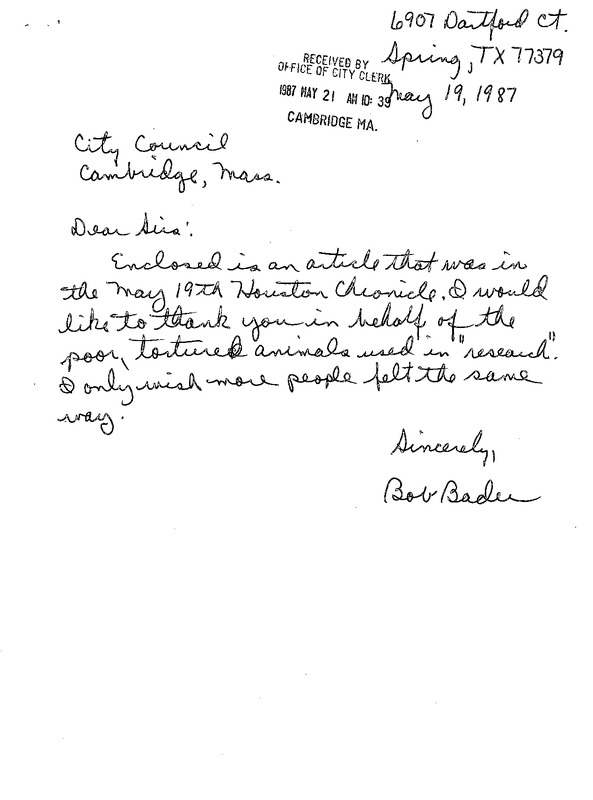 6907 Dartford Ct.
Spring, TX 77379
May 19, 1987
RECEIVED BY
OFFICE OF CITY CLERK
1987 MAY 21 AM 10:39
CAMBRIDGE MA.
City Council
Cambridge, Mass.
Dear Sirs:
Enclosed is an article that was in
the May 19th Houston Chronicle. I would
like to thank you in behalf of the
poor, tortured animals used in "research".
I only wish more people felt the same
way.
Sincerely,
Bob Bader